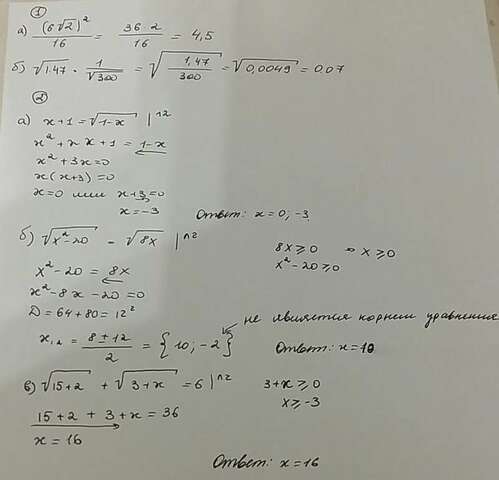 ①
а) (6√2)²/16 = 36·2/16 = 4,5
б) √1.47 · 1/√300 = √(1,47/300) = √0,0049 = 0.07
②
а) x+1 = √(1-x) |^2
x² + 2x + 1 = 1-x
x² + 3x = 0
x(x+3) = 0
x=0 или x+3=0
x = -3
Ответ: x = 0; -3
б) √(x²-20) = √(8x) |^2
8x ≥ 0 => x ≥ 0
x² - 20 ≥ 0
x² - 20 = 8x
x² - 8x - 20 = 0
D = 64 + 80 = 12²
x₁,₂ = (8 ± 12)/2 = {10; -2}
не является корнем уравнения
Ответ: x = 10
в) √(15+2) + √(3+x) = 6 |^2
3+x ≥ 0
x ≥ -3
15+2 + 3+x = 36
x = 16
Ответ: x = 16